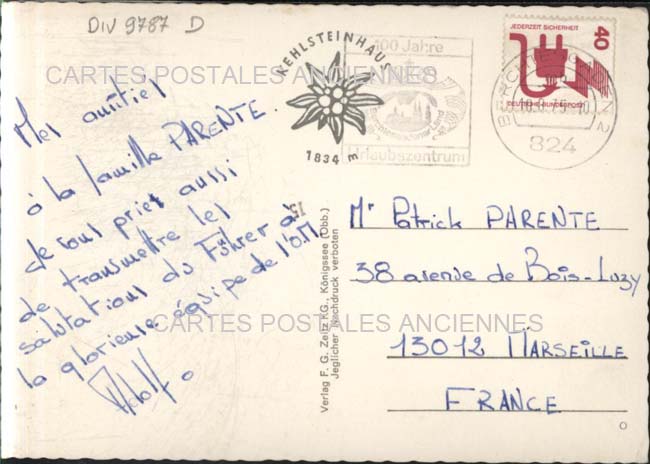 DIV 9787 D
CARTES POSTALES ANCIENNES
KEHLSTEINHAUS
1834 m
100 Jahre
Berchtesgadener Land
Urlaubszentrum
JEDERZEIT SICHERHEIT
40
DEUTSCHE BUNDESPOST
824
Mes amitiés
à la famille PARENTE.
Je vous prie aussi
de transmettre les
salutations du Führer à
la glorieuse équipe de l'O.M.
Adolfo
15
Verlag F. G. Zeitz KG., Königssee (Obb.)
Jeglicher Nachdruck verboten
Mr Patrick PARENTE
38 avenue de Bois-Luzy
13012 MARSEILLE
FRANCE
CARTES POSTALES ANCIENNES